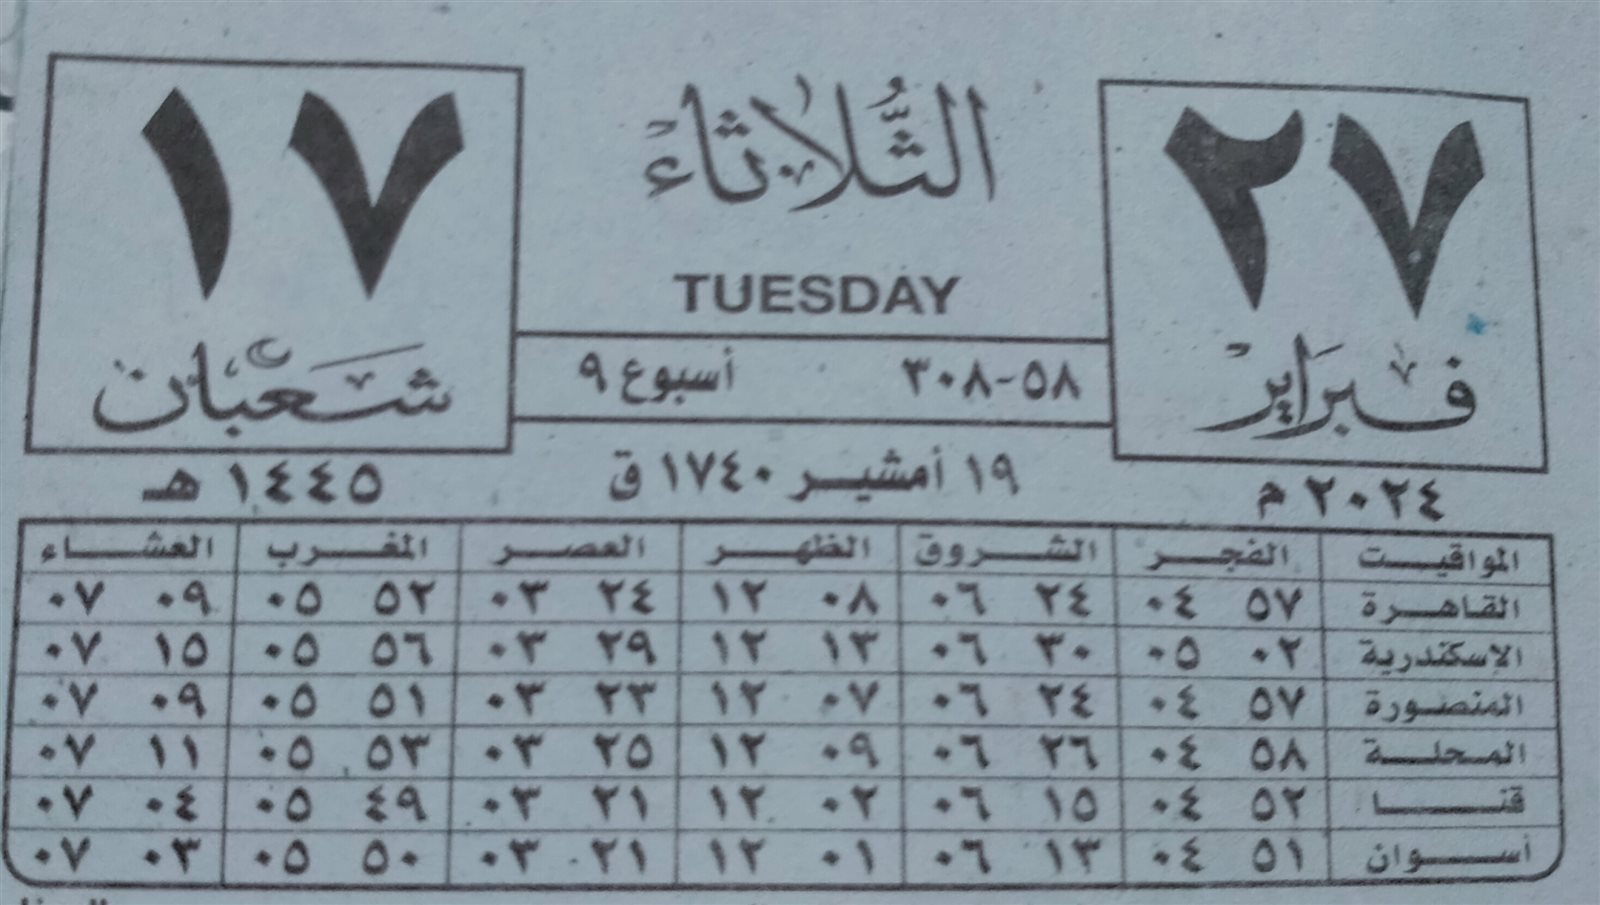 ٢٧ الثُّلاثاء ١٧
فبراير TUESDAY شعبان
٥٨-٣٠٨ أسبوع ٩
٢٠٢٤ م ١٩ أمشير ١٧٤٠ ق ١٤٤٥ هـ
المواقيت الفجر الشروق الظهر العصر المغرب العشاء
القاهرة ٥٧ ٠٤ ٢٤ ٠٦ ٠٨ ١٢ ٢٤ ٠٣ ٥٢ ٠٥ ٠٩ ٠٧
الاسكندرية ٠٢ ٠٥ ٣٠ ٠٦ ١٣ ١٢ ٢٩ ٠٣ ٥٦ ٠٥ ١٥ ٠٧
المنصورة ٥٧ ٠٤ ٢٤ ٠٦ ٠٧ ١٢ ٢٣ ٠٣ ٥١ ٠٥ ٠٩ ٠٧
المحلة ٥٨ ٠٤ ٢٦ ٠٦ ٠٩ ١٢ ٢٥ ٠٣ ٥٣ ٠٥ ١١ ٠٧
قنا ٥٢ ٠٤ ١٥ ٠٦ ٠٢ ١٢ ٢١ ٠٣ ٤٩ ٠٥ ٠٤ ٠٧
أسوان ٥١ ٠٤ ١٣ ٠٦ ٠١ ١٢ ٢١ ٠٣ ٥٠ ٠٥ ٠٣ ٠٧